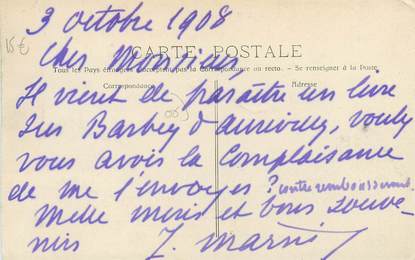 3 octobre 1908
15€
Cher Monsieur
CARTE POSTALE
Tous les Pays étrangers n'acceptent pas la Correspondance au recto. - Se renseigner à la Poste
Correspondance
Adresse
Il vient de paraître un livre
sur Barbey d'Aurevilly, voulez
vous avoir la Complaisance
de me l'envoyer? contre remboursement
Mille mercis et bons souve-
nirs J. Marni